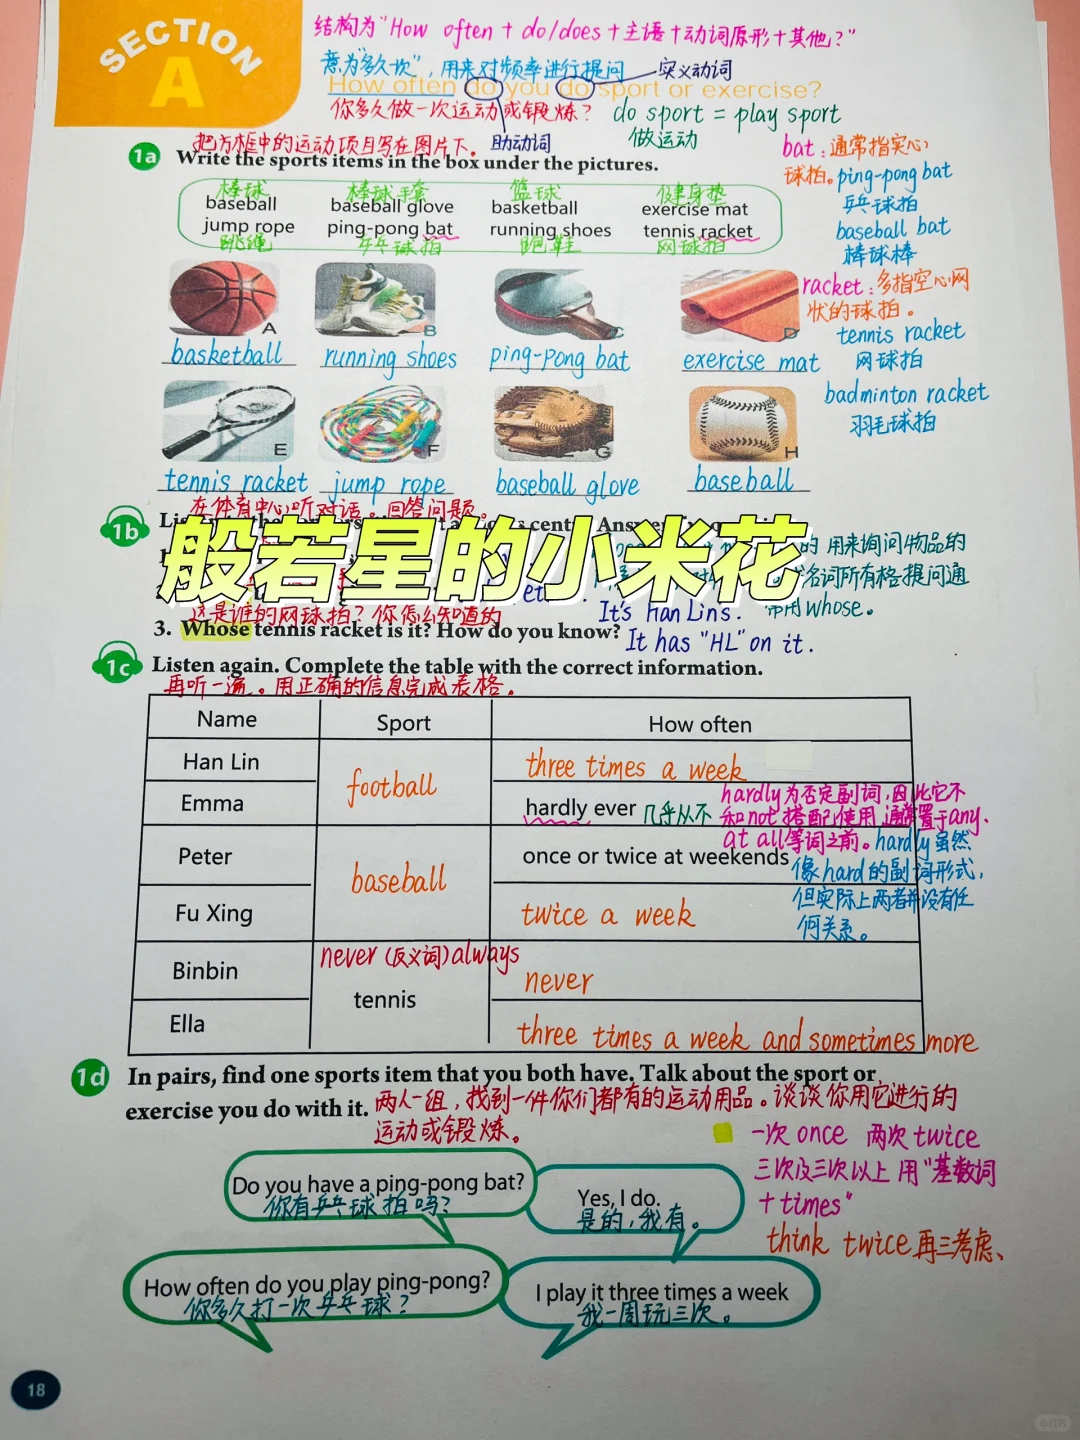 SECTION
A
结构为"How often + do/does + 主语 + 动词原形 + 其他?"
意为"多久一次", 用来对频率进行提问
实义动词
How often do you do sport or exercise?
你多久做一次运动或锻炼?
do sport = play sport
做运动
助动词
把方框中的运动项目写在图片下。
1a Write the sports items in the box under the pictures.
棒球 棒球手套 篮球 健身垫
baseball baseball glove basketball exercise mat
jump rope ping-pong bat running shoes tennis racket
跳绳 乒乓球拍 跑鞋 网球拍
bat: 通常指实心
球拍。ping-pong bat
乒乓球拍
baseball bat
棒球棒
racket: 多指空心网
状的球拍。
tennis racket
网球拍
badminton racket
羽毛球拍
A B C D
basketball running shoes ping-pong bat exercise mat
E F G H
tennis racket jump rope baseball glove baseball
在体育中心听对话。回答问题。
1b
般若星的小米花
的 用来询问物品的
名词所有格提问通
常用whose。
这是谁的网球拍? 你怎么知道的
It's Han Lin's.
3. Whose tennis racket is it? How do you know?
It has "HL" on it.
1c Listen again. Complete the table with the correct information.
再听一遍。用正确的信息完成表格。
Name Sport How often
Han Lin football three times a week
Emma hardly ever 几乎从不
hardly为否定副词,因此它不
和not搭配使用,通常置于any、
at all等词之前。hardly虽然
像hard的副词形式,
但实际上两者并没有任
何关系。
Peter baseball once or twice at weekends
Fu Xing twice a week
never (反义词) always
Binbin tennis never
Ella three times a week and sometimes more
1d In pairs, find one sports item that you both have. Talk about the sport or
exercise you do with it.
两人一组,找到一件你们都有的运动用品。谈谈你用它进行的
运动或锻炼。
一次 once 两次 twice
三次及三次以上 用"基数词
+ times"
think twice 再三考虑、
Do you have a ping-pong bat?
你有乒乓球拍吗?
Yes, I do.
是的,我有。
How often do you play ping-pong?
你多久打一次乒乓球?
I play it three times a week
我一周玩三次。
18